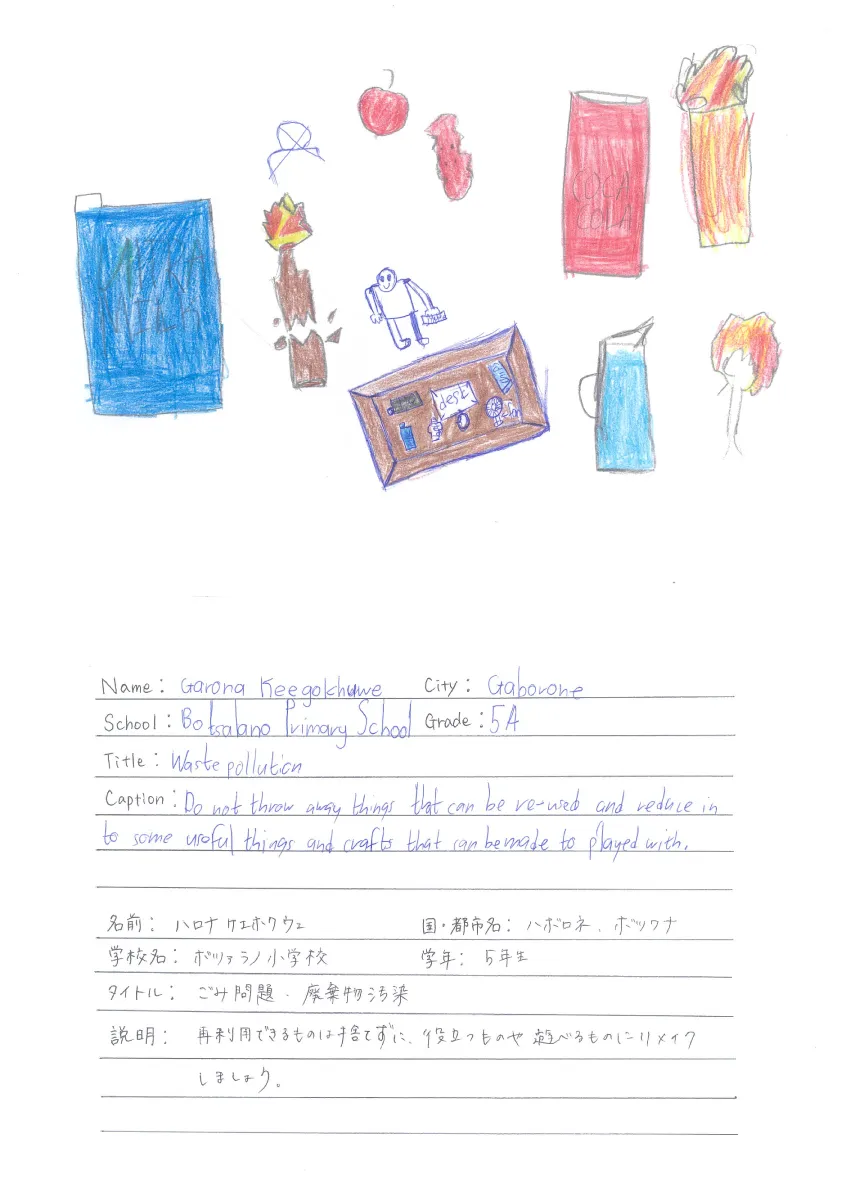 COCA
COLA
desk
Name: Garona Keegokhuwe City: Gaborone
School: Botsalano Primary School Grade: 5A
Title: Waste pollution
Caption: Do not throw away things that can be re-used and reduce in
to some useful things and crafts that can be made to played with.
名前: ハロナ ケエホクウェ 国・都市名: ハボロネ、ボツワナ
学校名: ボツァラノ小学校 学年: 5年生
タイトル: ごみ問題・廃棄物汚染
説明: 再利用できるものは捨てずに、役立つものや遊べるものにリメイク
しましょう。